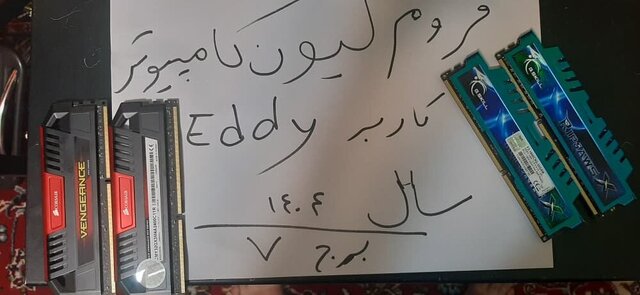 فروم لیون کامپیوتر
کاربر Eddy
سال ۱۴۰۴
برج ۷
VENGEANCE
CORSAIR
CORSAIR
G.SKILL
G.SKILL
RIPJAWS X